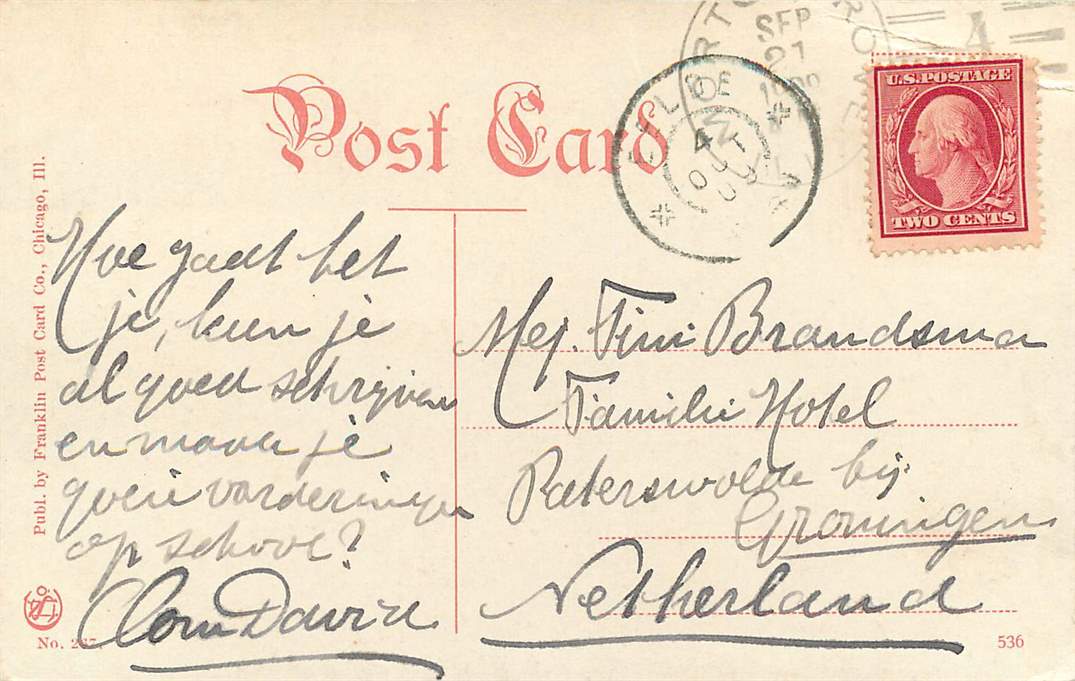 Post Card
SEP
21
U.S. POSTAGE
TWO CENTS
EELDE
4
OCT
Publ. by Franklin Post Card Co., Chicago, Ill.
Hoe gaat het
je, kun je
al goed schrijven
en maak je
goeie vorderingen
op school?
Oom David
Mej. Tini Brandsma
Familie Hotel
Paterswolde bij
Groningen
Netherland
No.
536